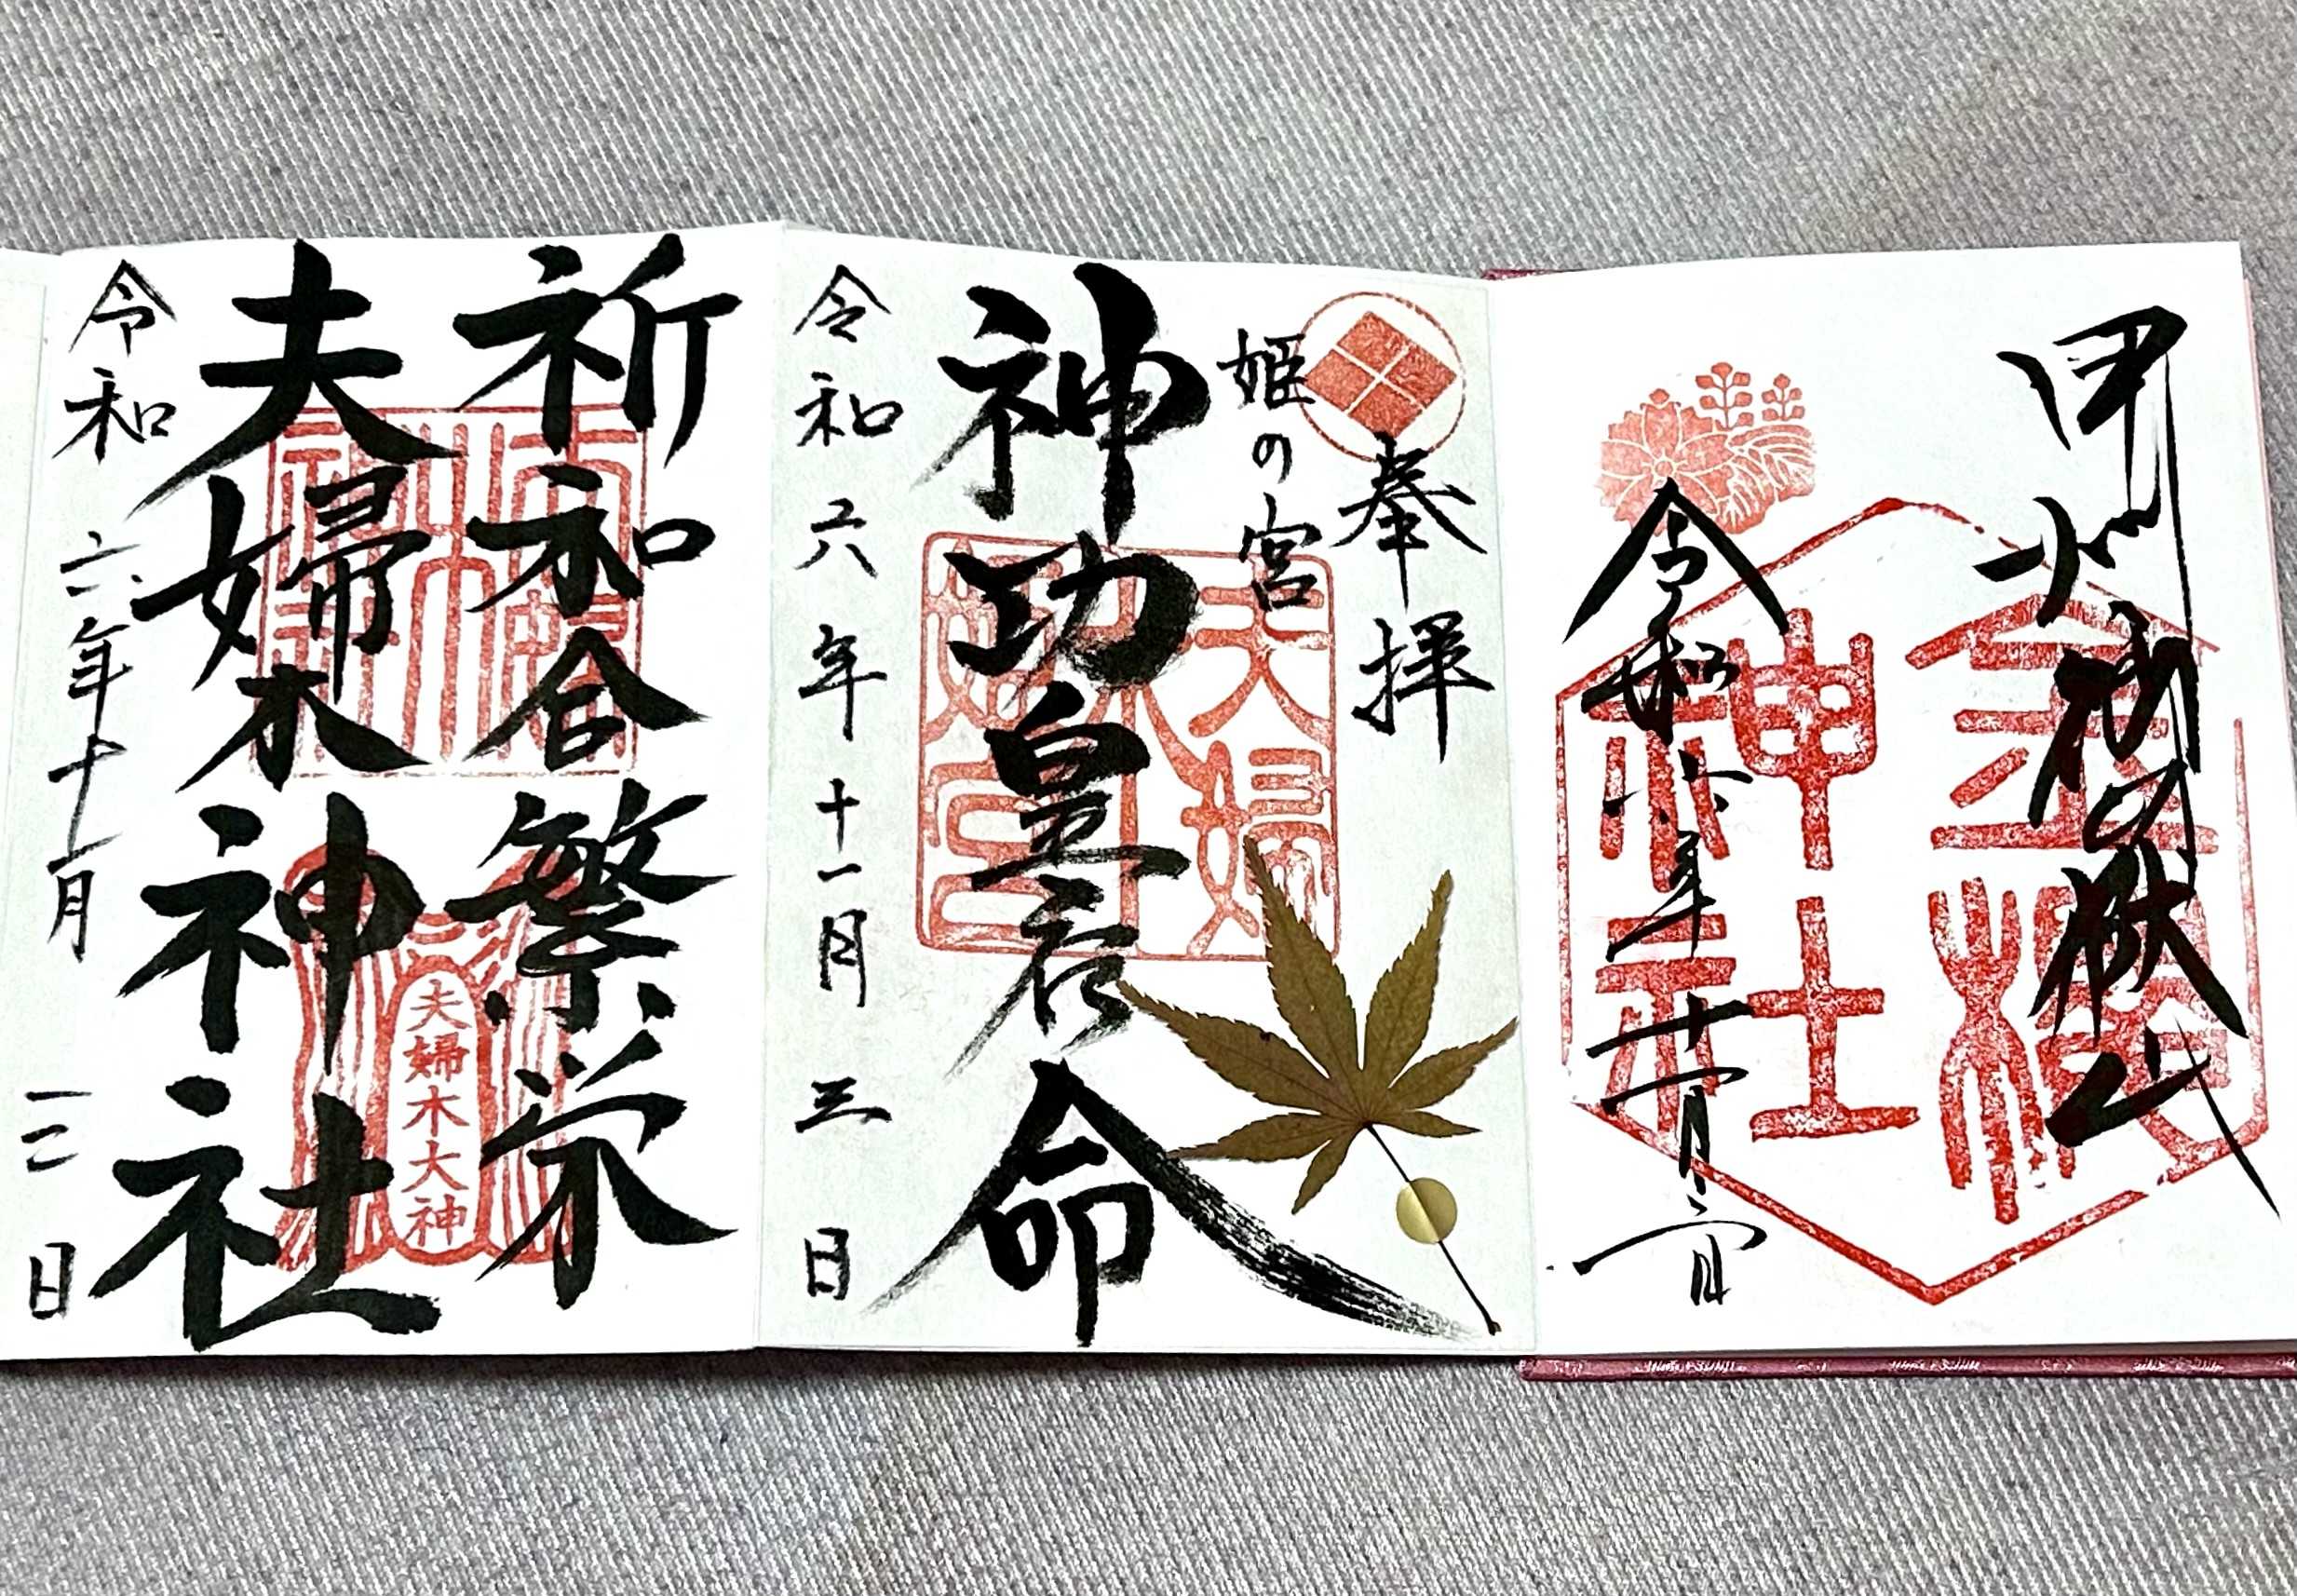 金櫻神社
令和六年十一月三日
奉拝
姫の宮
神功皇后命
夫婦木姫宮
令和六年十一月三日
祈和合繁栄
夫婦木神社
夫婦木大神
令和六年十一月三日